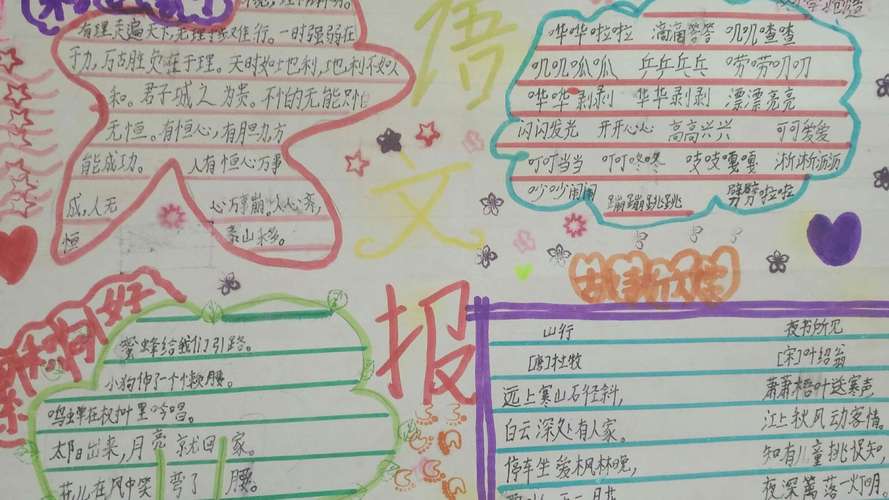 有理走遍天下,无理寸步难行。一时强弱在
于力,万古胜负在于理。天时如地利,地利不如人
和。君子诚之为贵。不怕的无能只怕
无恒。有恒心,有胆力方
能成功。 人有恒心万事
成,人无 心万事崩。人心齐,
恒 泰山移。
语
文
报
哗哗啦啦 滴滴答答 叽叽喳喳
叽叽呱呱 乒乒乓乓 唠唠叨叨
哗哗剥剥 华华剥剥 漂漂亮亮
闪闪发光 开开心心 高高兴兴 可可爱爱
叮叮当当 叮叮咚咚 吱吱嘎嘎 淅淅沥沥
吵吵闹闹 蹦蹦跳跳 劈劈啦啦
好
蜜蜂给我们引路。
小狗伸了一个懒腰。
鸣蝉在树叶里吟唱。
太阳出来,月亮就回家。
花儿在风中笑弯了腰。
山行
[唐]杜牧
远上寒山石径斜,
白云深处有人家。
停车坐爱枫林晚,
夜书所见
[宋]叶绍翁
萧萧梧叶送寒声
江上秋风动客情。
知有儿童挑促织,
夜深篱落一灯明。